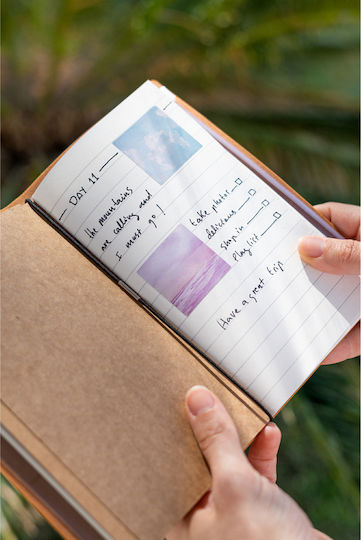 DAY 11
the mountains
are calling and
I must go!
take photos
delicious
shop in
playlist
Have a great trip